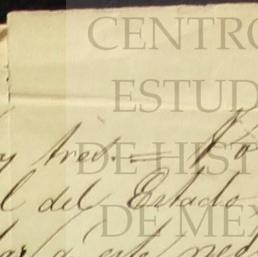 CENTRO
ESTUD
DE HIST
DE MEX
y tres. = 
l del Estado
a este